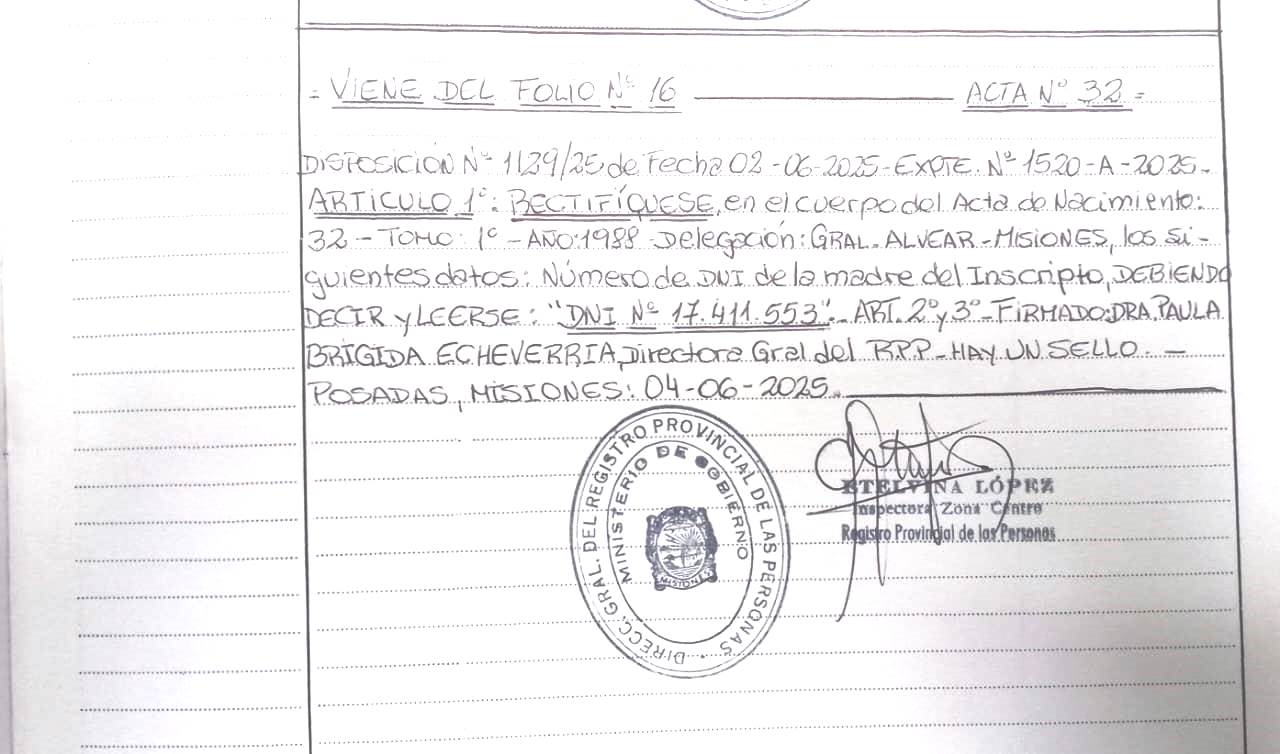 = VIENE DEL FOLIO Nº 16 ACTA Nº 32 =
DISPOSICIÓN Nº 1129/25 de Fecha 02-06-2025-EXPTE. Nº 1520-A-2025.
ARTICULO 1º: RECTIFÍQUESE, en el cuerpo del Acta de Nacimiento:
32 - TOMO: 1º - AÑO: 1988 Delegación: GRAL. ALVEAR - MISIONES, los si-
guientes datos: Número de DNI de la madre del Inscripto, DEBIENDO
DECIR y LEERSE: "DNI Nº 17.411.553". ART. 2º y 3º - FIRMADO: DRA. PAULA
BRIGIDA ECHEVERRIA, Directora Gral del RPP - HAY UN SELLO. —
POSADAS, MISIONES: 04-06-2025.
DIRECC. GRAL. DEL REGISTRO PROVINCIAL DE LAS PERSONAS
MINISTERIO DE GOBIERNO
MISIONES
ETELVINA LÓPEZ
Inspectora Zona Centro
Registro Provincial de las Personas